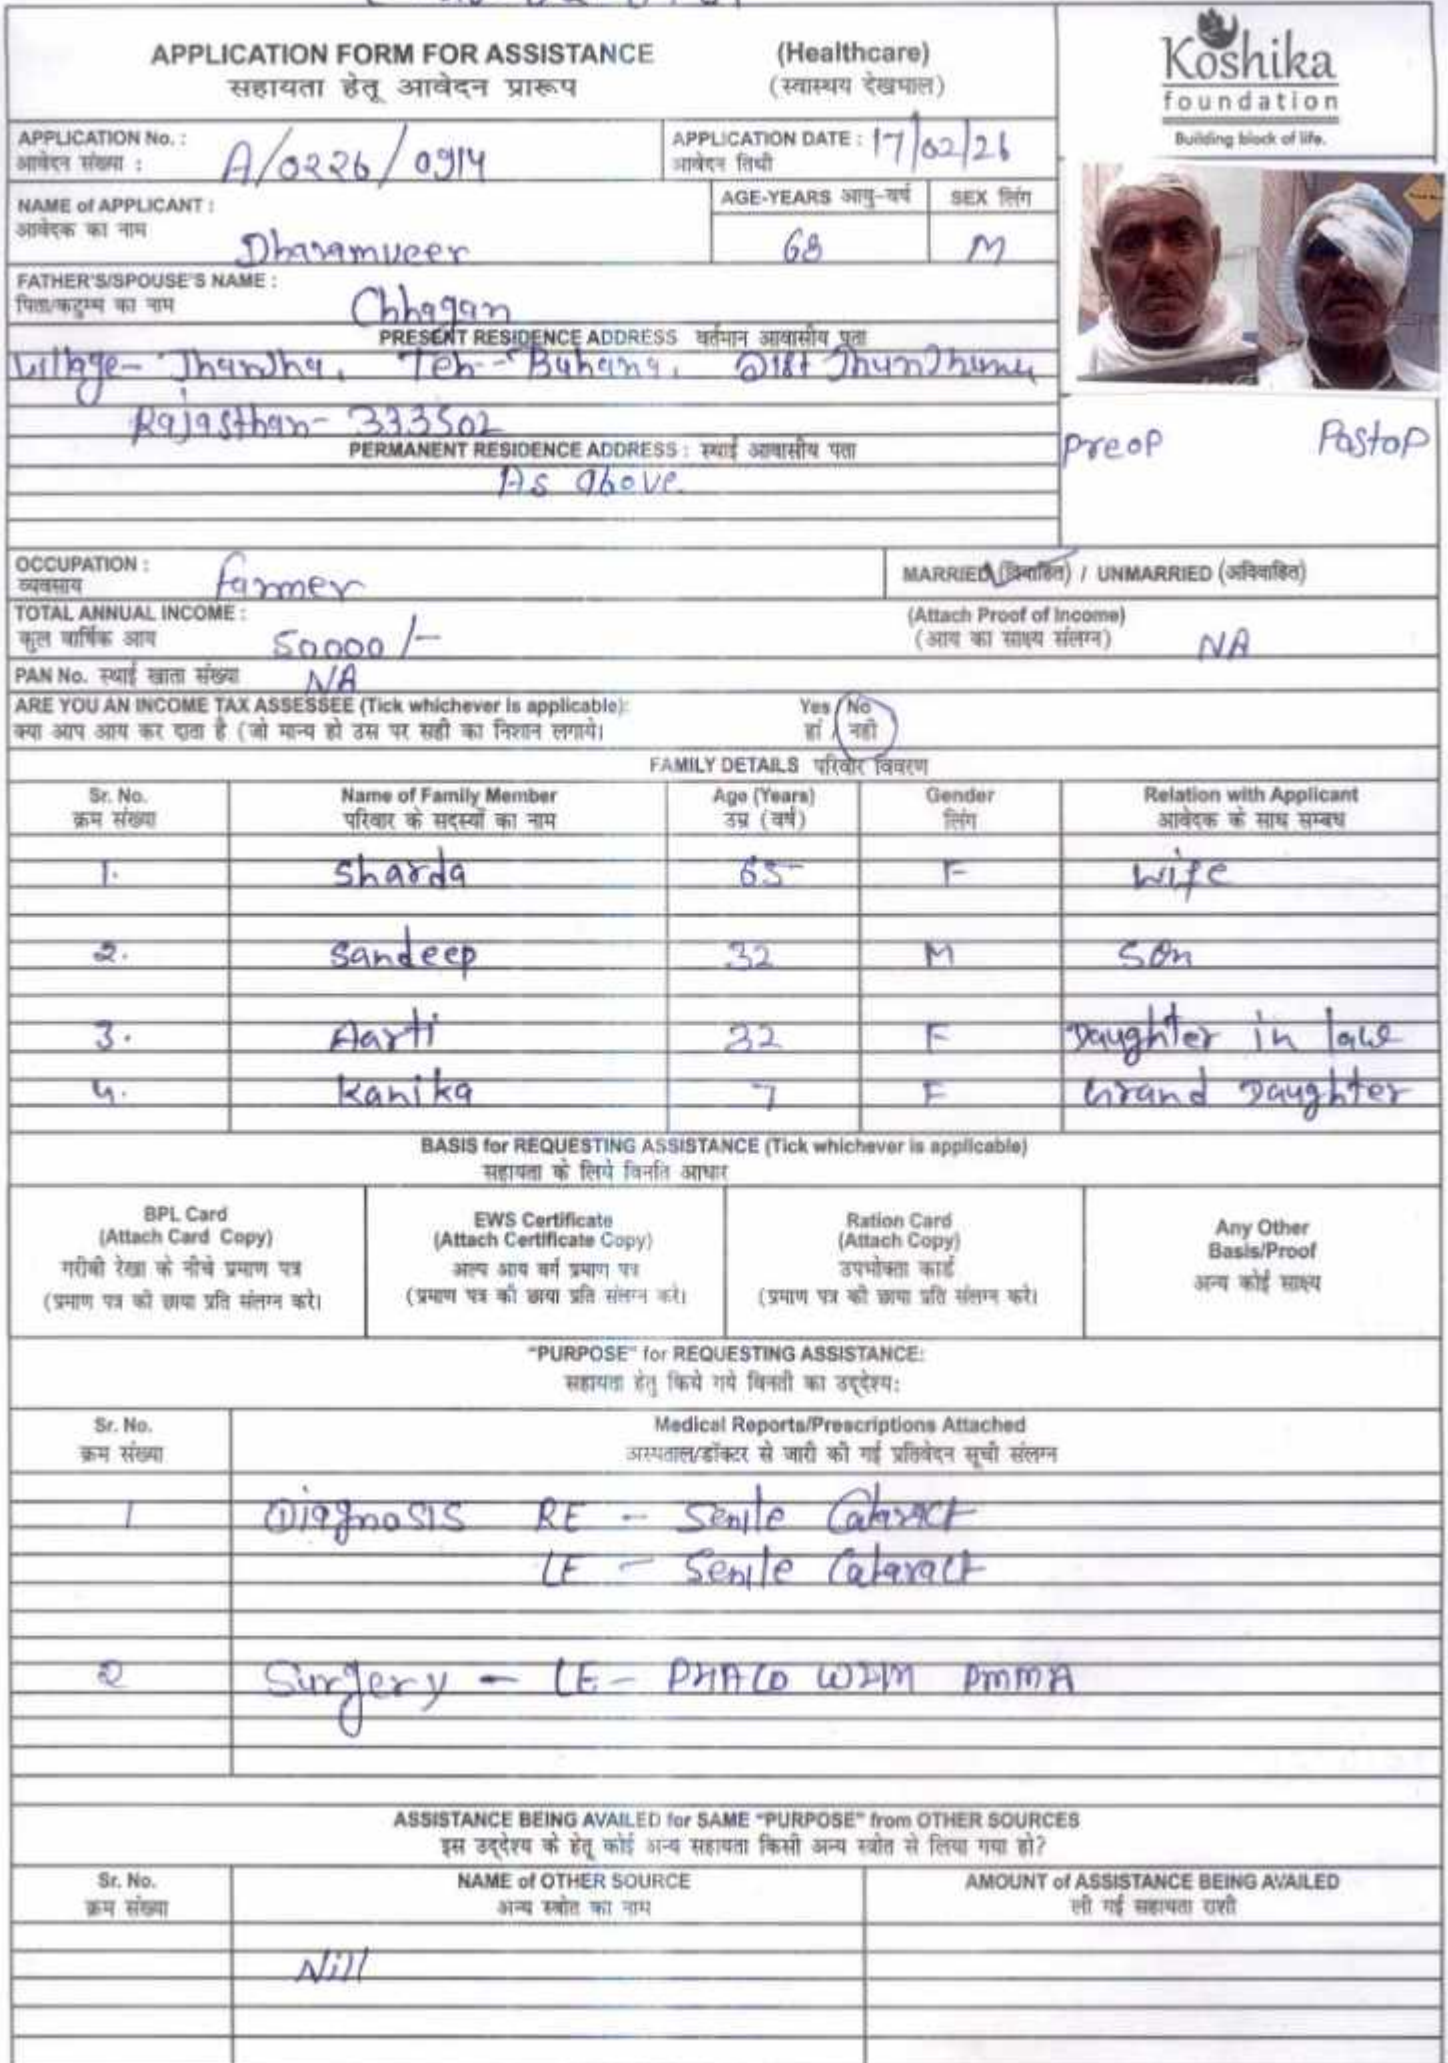 APPLICATION FORM FOR ASSISTANCE (Healthcare)
सहायता हेतू आवेदन प्रारूप (स्वास्थय देखभाल)
Koshika
foundation
Building block of life.
APPLICATION No. : A/0226/0914
आवेदन संख्या :
APPLICATION DATE : 17/02/26
आवेदन तिथी
NAME of APPLICANT : Dharamveer
आवेदक का नाम
AGE-YEARS आयु-वर्ष 68
SEX लिंग M
FATHER'S/SPOUSE'S NAME : Chhagan
पिता/कटुम्ब का नाम
PRESENT RESIDENCE ADDRESS वर्तमान आवासीय पता
Village- Teh- Buhana, Dist Jhunjhunu
Rajasthan- 333502
PERMANENT RESIDENCE ADDRESS : स्थाई आवासीय पता
As above
Preop Postop
OCCUPATION : farmer
व्यवसाय
MARRIED (विवाहित) / UNMARRIED (अविवाहित)
TOTAL ANNUAL INCOME : 50000/-
कुल वार्षिक आय
(Attach Proof of Income)
(आय का साक्ष्य संलग्न) NA
PAN No. स्थाई खाता संख्या NA
ARE YOU AN INCOME TAX ASSESSEE (Tick whichever is applicable): Yes / No
क्या आप आय कर दाता है (जो मान्य हो उस पर सही का निशान लगाये। हां / नही
FAMILY DETAILS परिवार विवरण
Sr. No. Name of Family Member Age (Years) Gender Relation with Applicant
क्रम संख्या परिवार के सदस्यों का नाम उम्र (वर्ष) लिंग आवेदक के साथ सम्बध
1. Sharda 65 F Wife
2. Sandeep 32 M Son
3. Aarti 32 F Daughter in law
4. Kanika 7 F Grand Daughter
BASIS for REQUESTING ASSISTANCE (Tick whichever is applicable)
सहायता के लिये विनति आधार
BPL Card
(Attach Card Copy)
गरीबी रेखा के नीचे प्रमाण पत्र
(प्रमाण पत्र की छाया प्रति संलग्न करे।
EWS Certificate
(Attach Certificate Copy)
अल्प आय वर्ग प्रमाण पत्र
(प्रमाण पत्र की छाया प्रति संलग्न करे।
Ration Card
(Attach Copy)
उपभोक्ता कार्ड
(प्रमाण पत्र की छाया प्रति संलग्न करे।
Any Other
Basis/Proof
अन्य कोई साक्ष्य
"PURPOSE" for REQUESTING ASSISTANCE:
सहायता हेतु किये गये विनती का उद्देश्य:
Sr. No. Medical Reports/Prescriptions Attached
क्रम संख्या अस्पताल/डॉक्टर से जारी की गई प्रतिवेदन सूची संलग्न
1 Diagnosis RE - Senile Cataract
LE - Senile Cataract
2 Surgery - LE - PHACO WITH PMMA
ASSISTANCE BEING AVAILED for SAME "PURPOSE" from OTHER SOURCES
इस उद्देश्य के हेतू कोई अन्य सहायता किसी अन्य स्त्रोत से लिया गया हो?
Sr. No. NAME of OTHER SOURCE AMOUNT of ASSISTANCE BEING AVAILED
क्रम संख्या अन्य स्त्रोत का नाम ली गई सहायता राशी
Nill